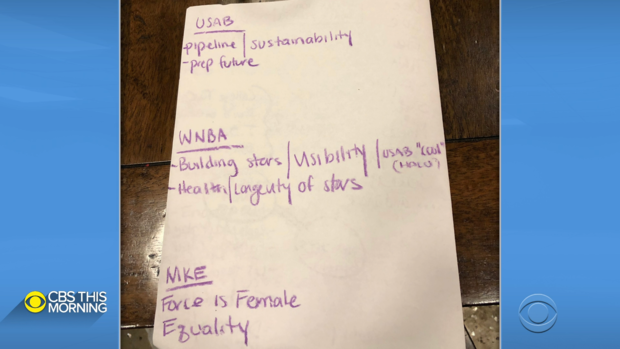 USAB
-pipeline | sustainability
-prep future
WNBA
-Building stars / Visibility / USAB "cool"
(HALO)
-Health / Longevity of stars
NKE
Force is Female
Equality
CBS THIS
MORNING